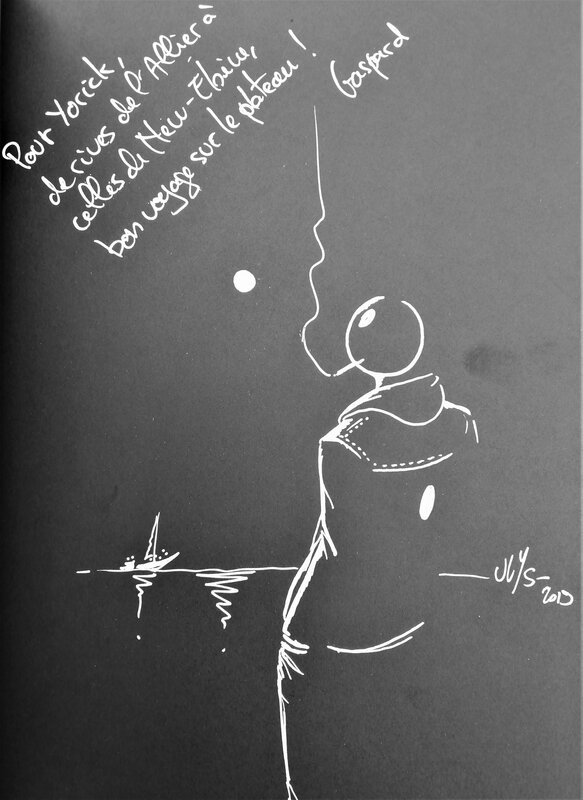 Pour Yorick,
de rives de l'Allier à
celles de New-Ébène,
bon voyage sur le plateau !
Gaspard
Ulys-
2019